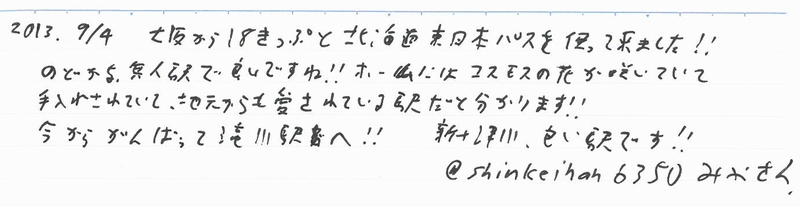 2013. 9/4 大阪から18きっぷと北海道東日本パスを使って来ました!!
のどかな無人駅で良いですね!! ホームにはコスモスの花が咲いていて
手入れされていて、地元からも愛されている駅だと分かります!!
今からがんばって滝川駅へ!! 新十津川、良い駅です!!
@shinkeihan6350 みおさん